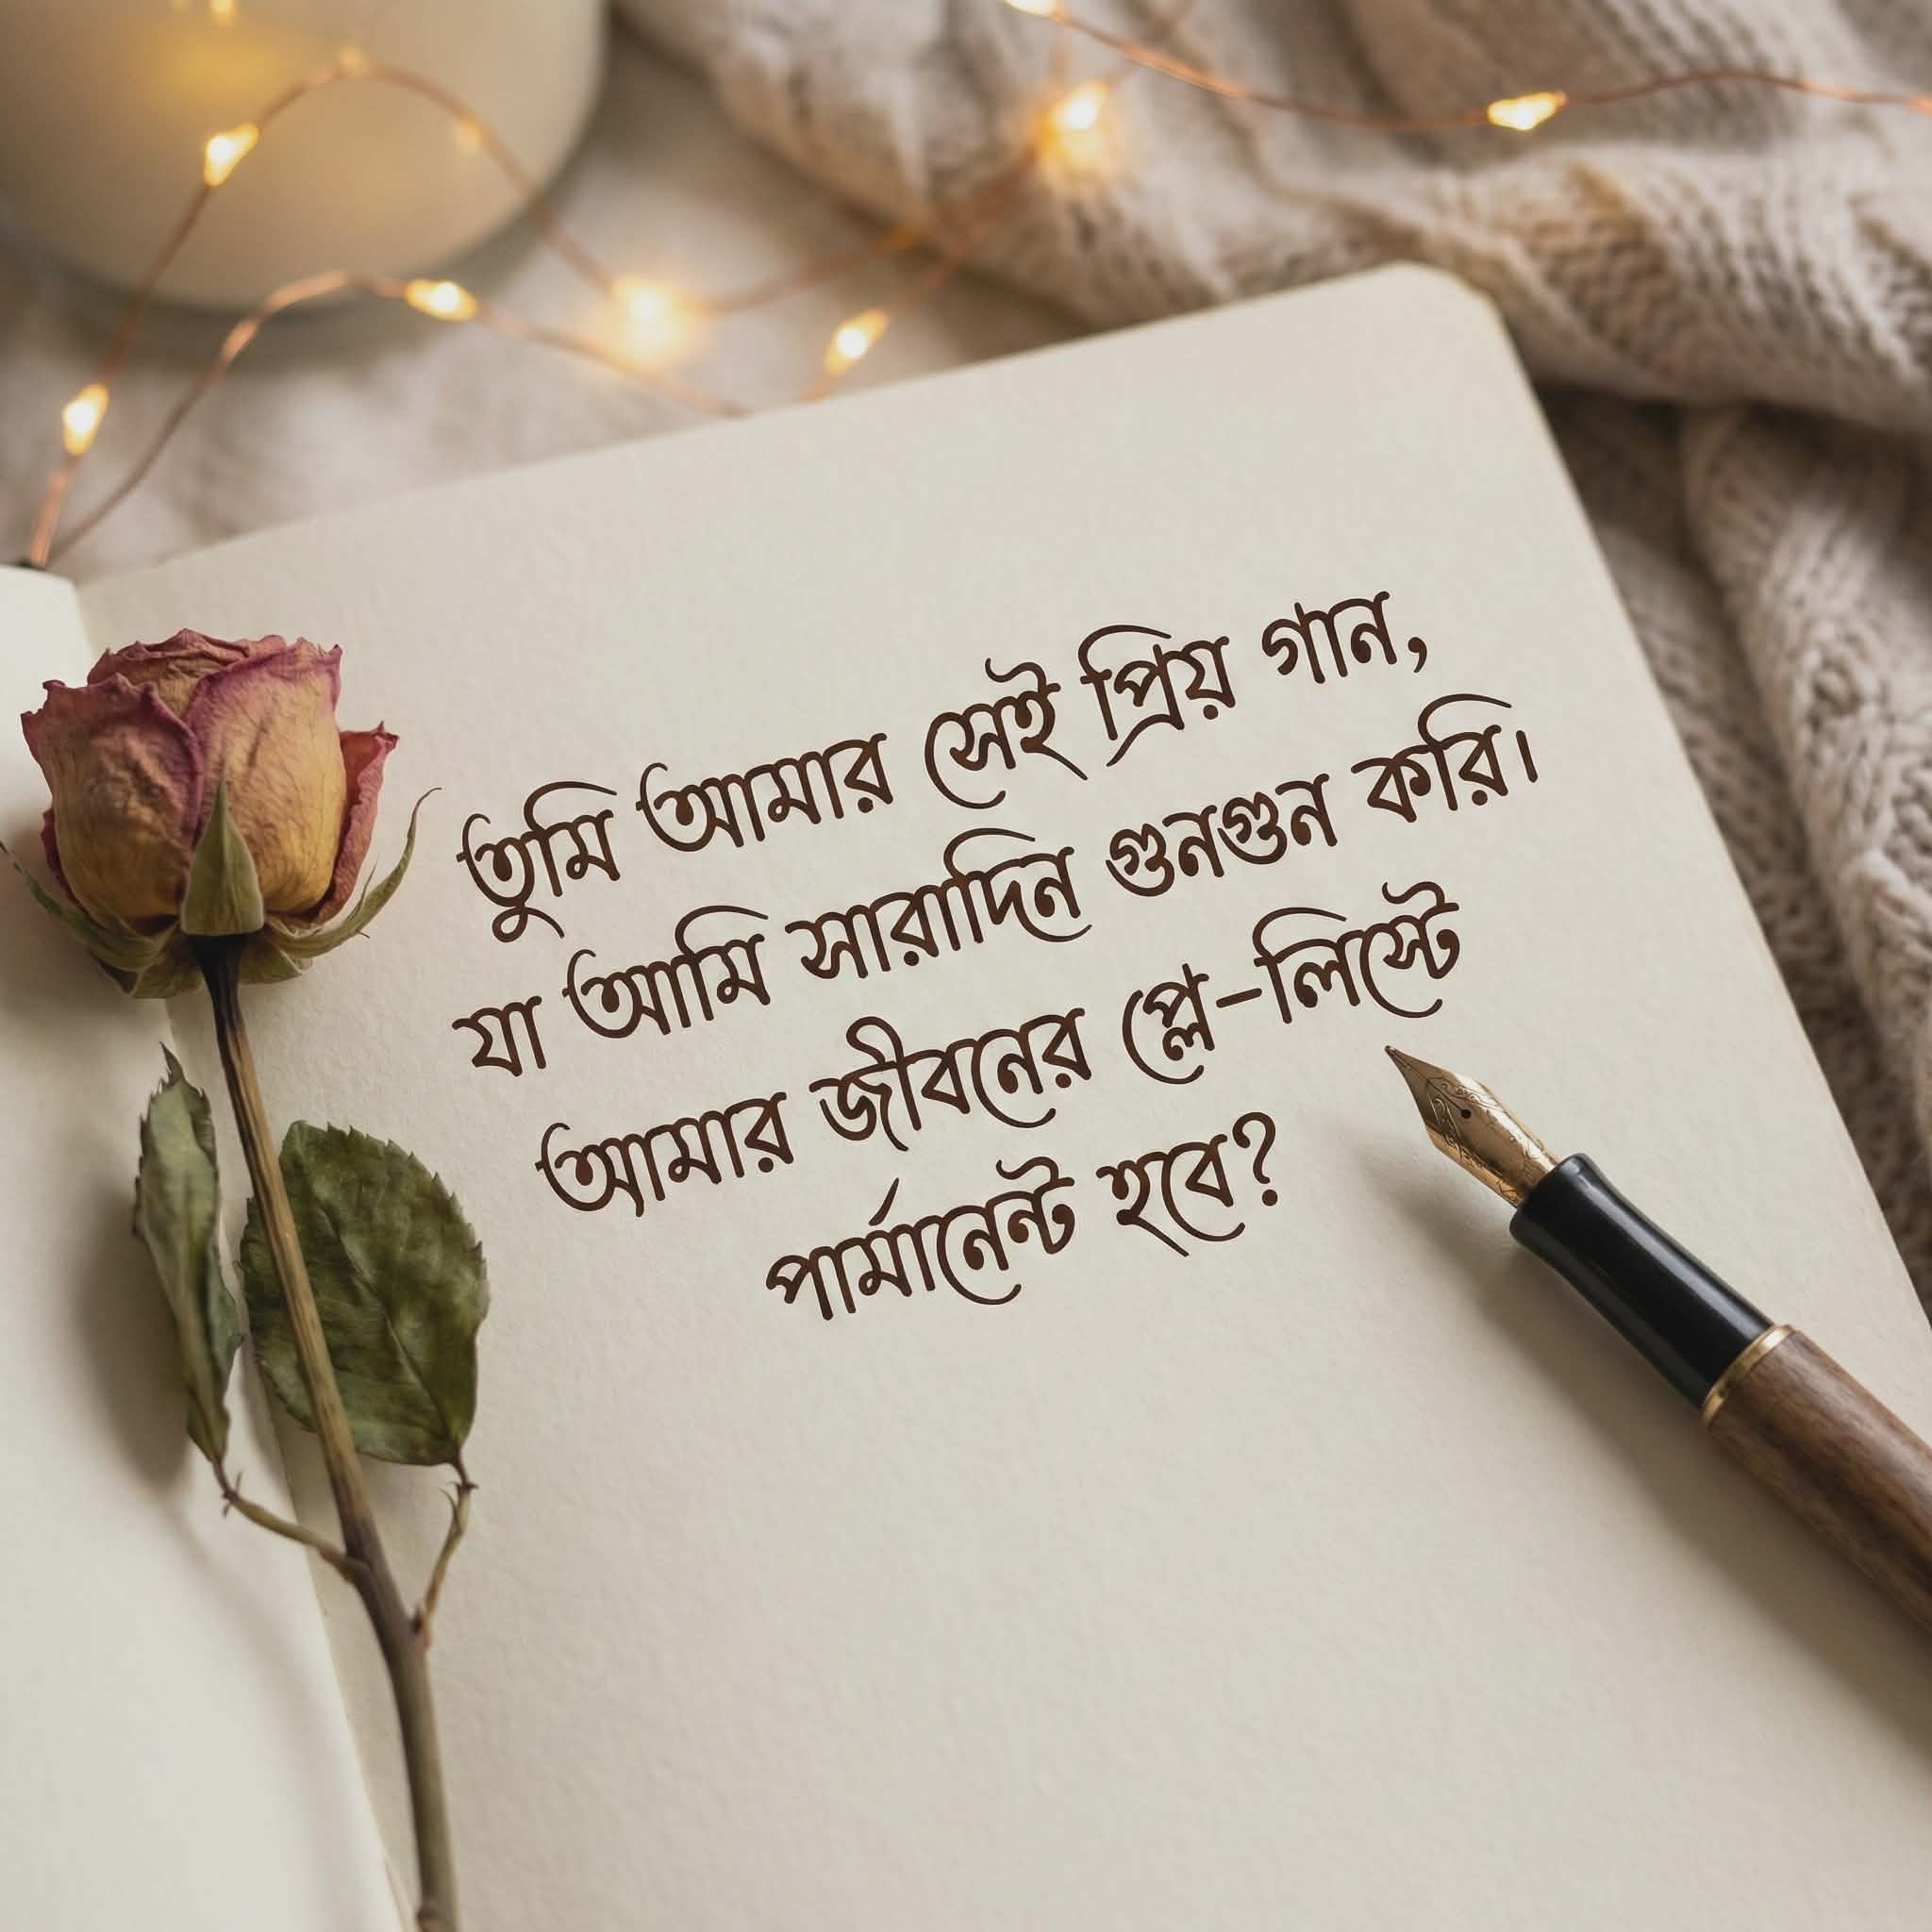 তুমি আমার সেই প্রিয় গান,
যা আমি সারাদিন গুনগুন করি।
আমার জীবনের প্লে-লিস্টে
পার্মানেন্ট হবে?